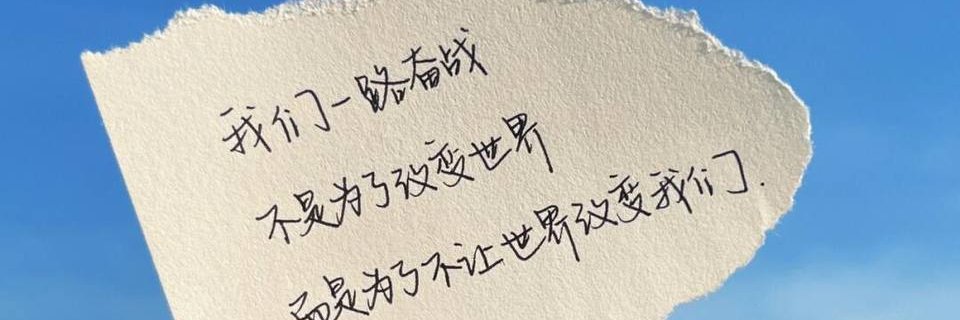 我们一路奋战
不是为了改变世界
而是为了不让世界改变我们.